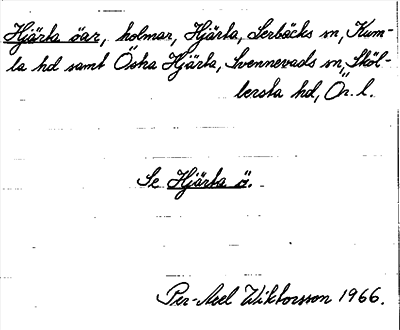 Hjärta öar, holmar, Hjärta, Lerbäcks sn, Kum-
la hd samt Östra Hjärta, Svennevads sn, Sköl-
lersta hd, Ör. l.
Se Hjärta ö.
Per-Axel Wiktorsson 1966.